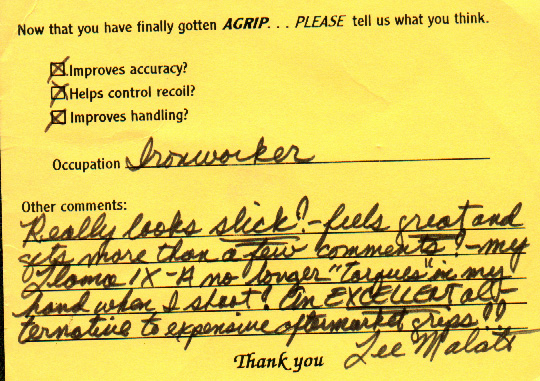 Now that you have finally gotten AGRIP. . . PLEASE tell us what you think.
Improves accuracy?
Helps control recoil?
Improves handling?
Occupation Ironworker
Other comments:
Really looks slick! - feels great and
gets more than a few comments! - my
Llama IX-A no longer "torques" in my
hand when I shoot! An EXCELLENT al-
ternative to expensive aftermarket grips!!
Thank you Lee